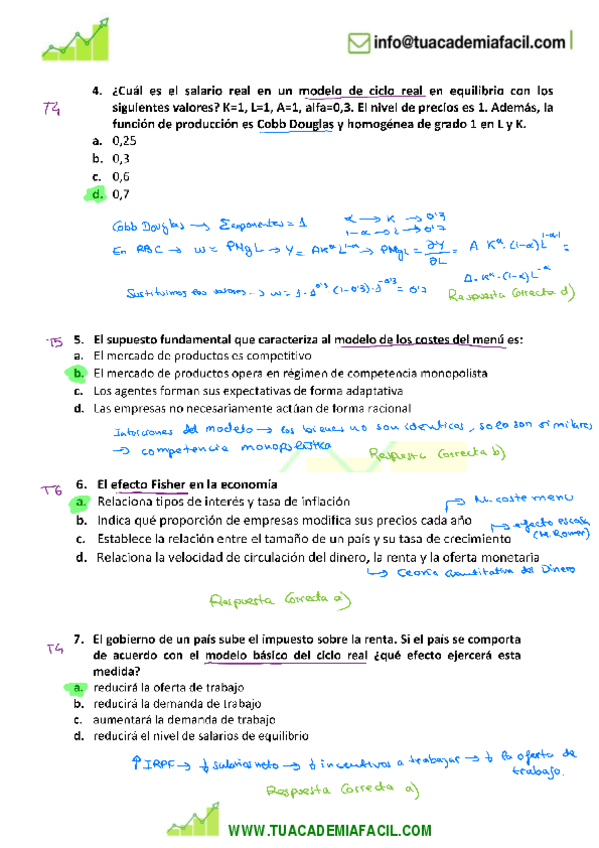 info@tuacademiafacil.com
T4
4. ¿Cuál es el salario real en un modelo de ciclo real en equilibrio con los
siguientes valores? K=1, L=1, A=1, alfa=0,3. El nivel de precios es 1. Además, la
función de producción es Cobb Douglas y homogénea de grado 1 en L y K.
a. 0,25
b. 0,3
c. 0,6
d. 0,7
Cobb Douglas → Σ exponentes = 1 α → K → 0'3
1-α → L → 0'7
En RBC → w = PMgL → Y = AK^α L^1-α → PMgL = ∂Y/∂L = A K^α · (1-α) L^1-α-1 =
A · K^α · (1-α) L^-α
Sustituimos los valores → w = 1 · 1^0'3 (1-0'3) · 1^-0'3 = 0'7 Respuesta Correcta d)
T5
5. El supuesto fundamental que caracteriza al modelo de los costes del menú es:
a. El mercado de productos es competitivo
b. El mercado de productos opera en régimen de competencia monopolista
c. Los agentes forman sus expectativas de forma adaptativa
d. Las empresas no necesariamente actúan de forma racional
Intuiciones del modelo → los bienes no son identicos, solo son similares
→ competencia monopolistica Respuesta Correcta b)
T6
6. El efecto Fisher en la economía
a. Relaciona tipos de interés y tasa de inflación
→ M. coste menu
b. Indica qué proporción de empresas modifica sus precios cada año
→ efecto escala
(M. Romer)
c. Establece la relación entre el tamaño de un país y su tasa de crecimiento
d. Relaciona la velocidad de circulación del dinero, la renta y la oferta monetaria
→ Teoría Cuantitativa del Dinero
Respuesta Correcta a)
T4
7. El gobierno de un país sube el impuesto sobre la renta. Si el país se comporta
de acuerdo con el modelo básico del ciclo real ¿qué efecto ejercerá esta
medida?
a. reducirá la oferta de trabajo
b. reducirá la demanda de trabajo
c. aumentará la demanda de trabajo
d. reducirá el nivel de salarios de equilibrio
↑ IRPF → ↓ salarios neto → ↓ incentivos a trabajar → ↓ la oferta de
trabajo.
Respuesta Correcta a)
WWW.TUACADEMIAFACIL.COM